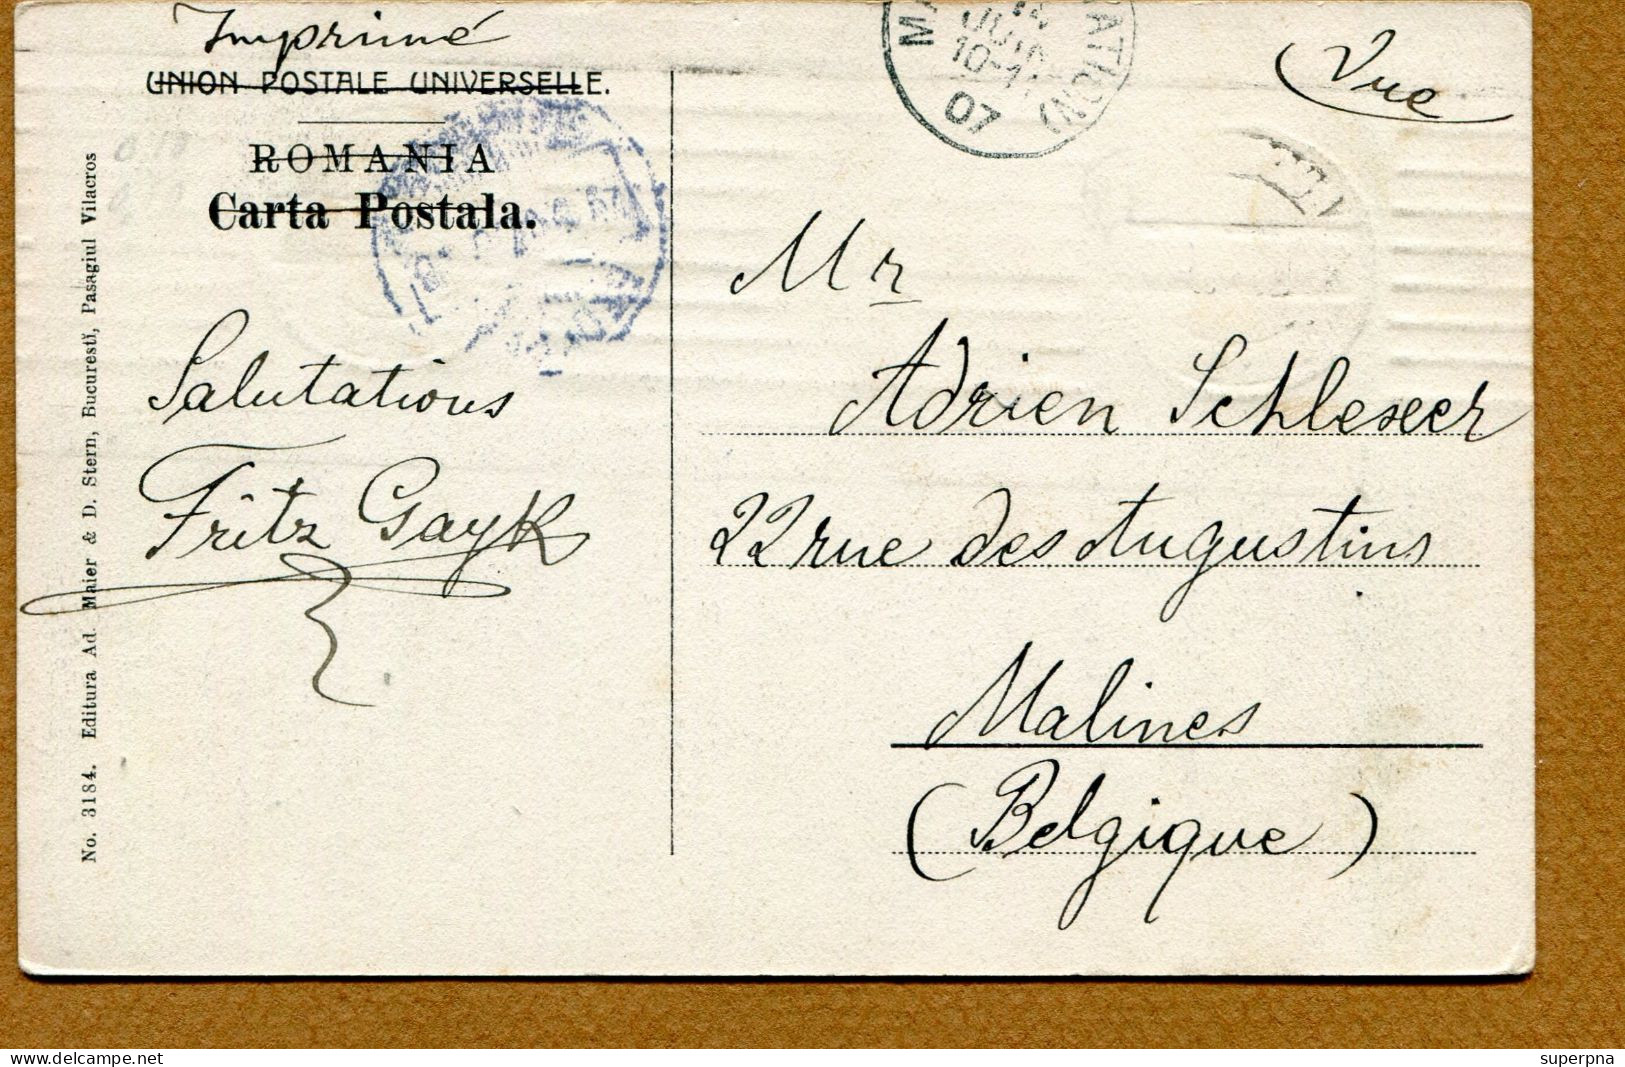 Imprimé
UNION POSTALE UNIVERSELLE.
ROMANIA
Carta Postala.
Salutations
Fritz Gayk
No. 3184. Editura Ad. Maier & D. Stern, Bucuresti, Pasagiul Vilacros
10-11
07
Vue
Mr
Adrien Schlesser
22 rue des Augustins
Malines
(Belgique)
superpna